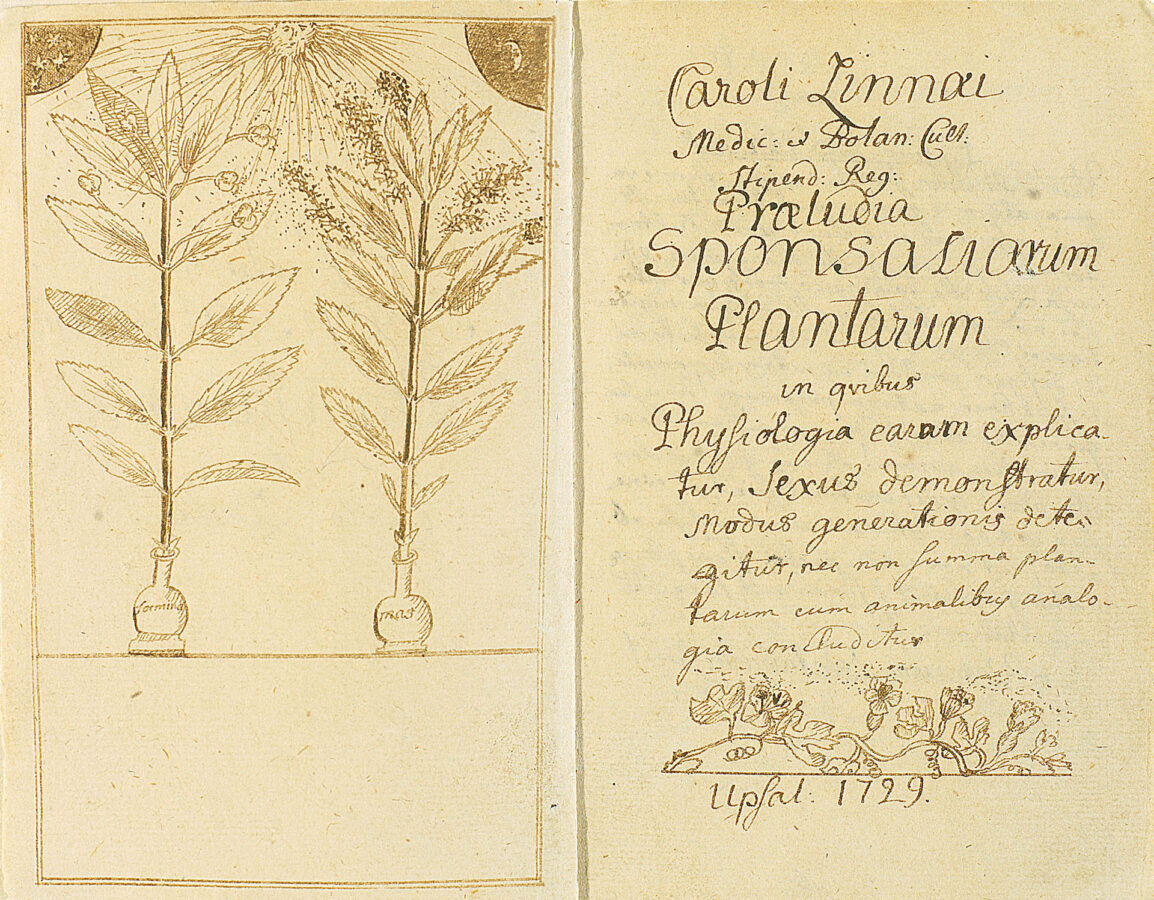 foemina
mas
Caroli Linnæi
Medic: & Botan: Cult:
Stipend: Reg:
Præludia
Sponsaliorum
Plantarum
in qvibus
Physiologia earum explica-
tur, Sexus demonstratur,
Modus generationis dete-
gitur, nec non summa plan-
tarum cum animalibus analo-
gia concluditur
Upsal: 1729.